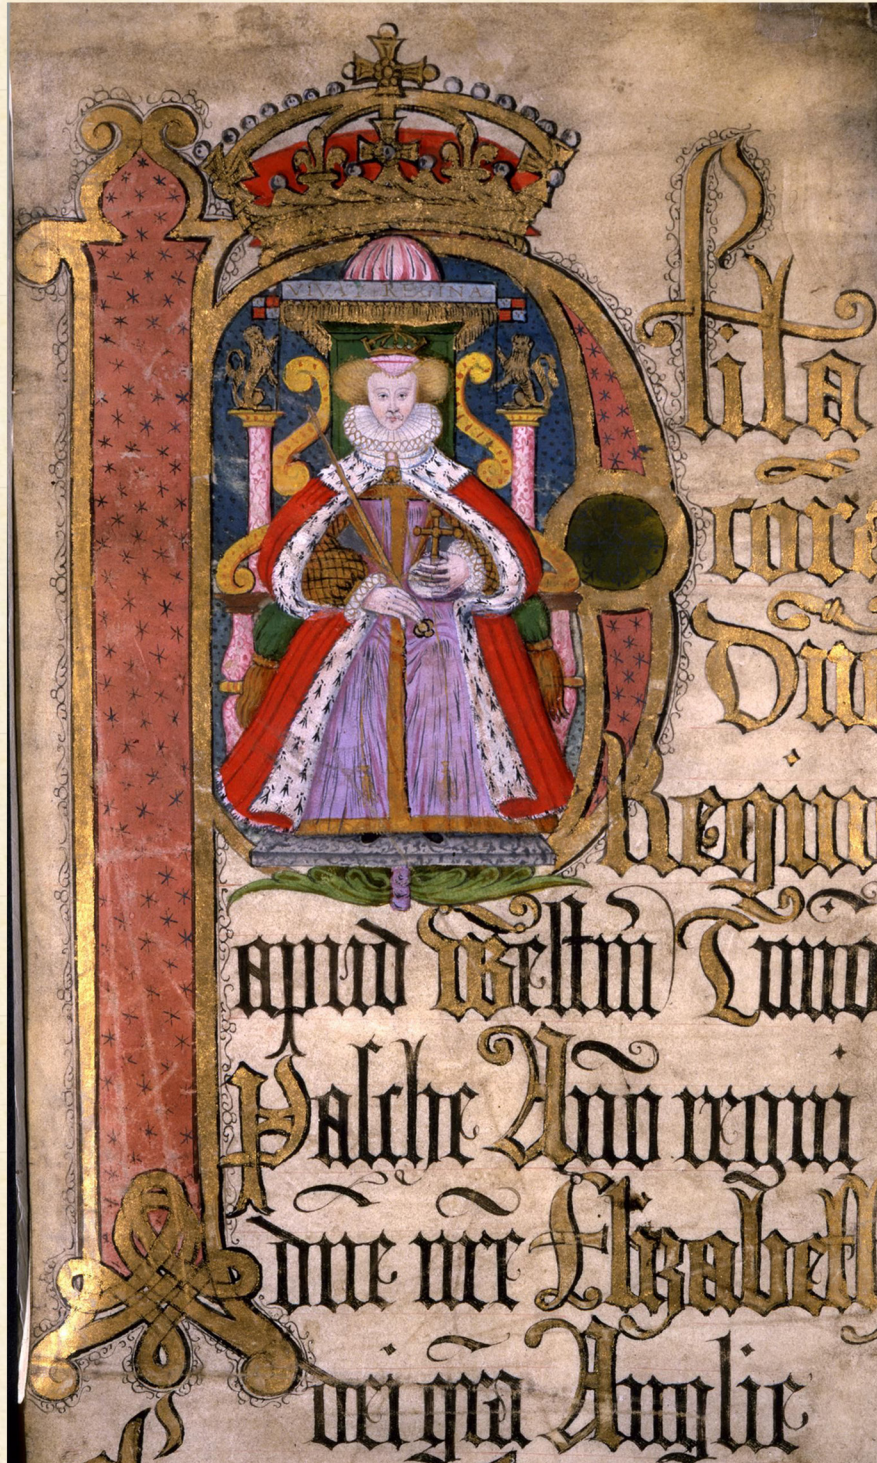 VIVAT REGINA
Plita
cora
Dna
Regin
apud Westm
Pasche Anno regni
dne nre Elizabeth
Regina Anglie